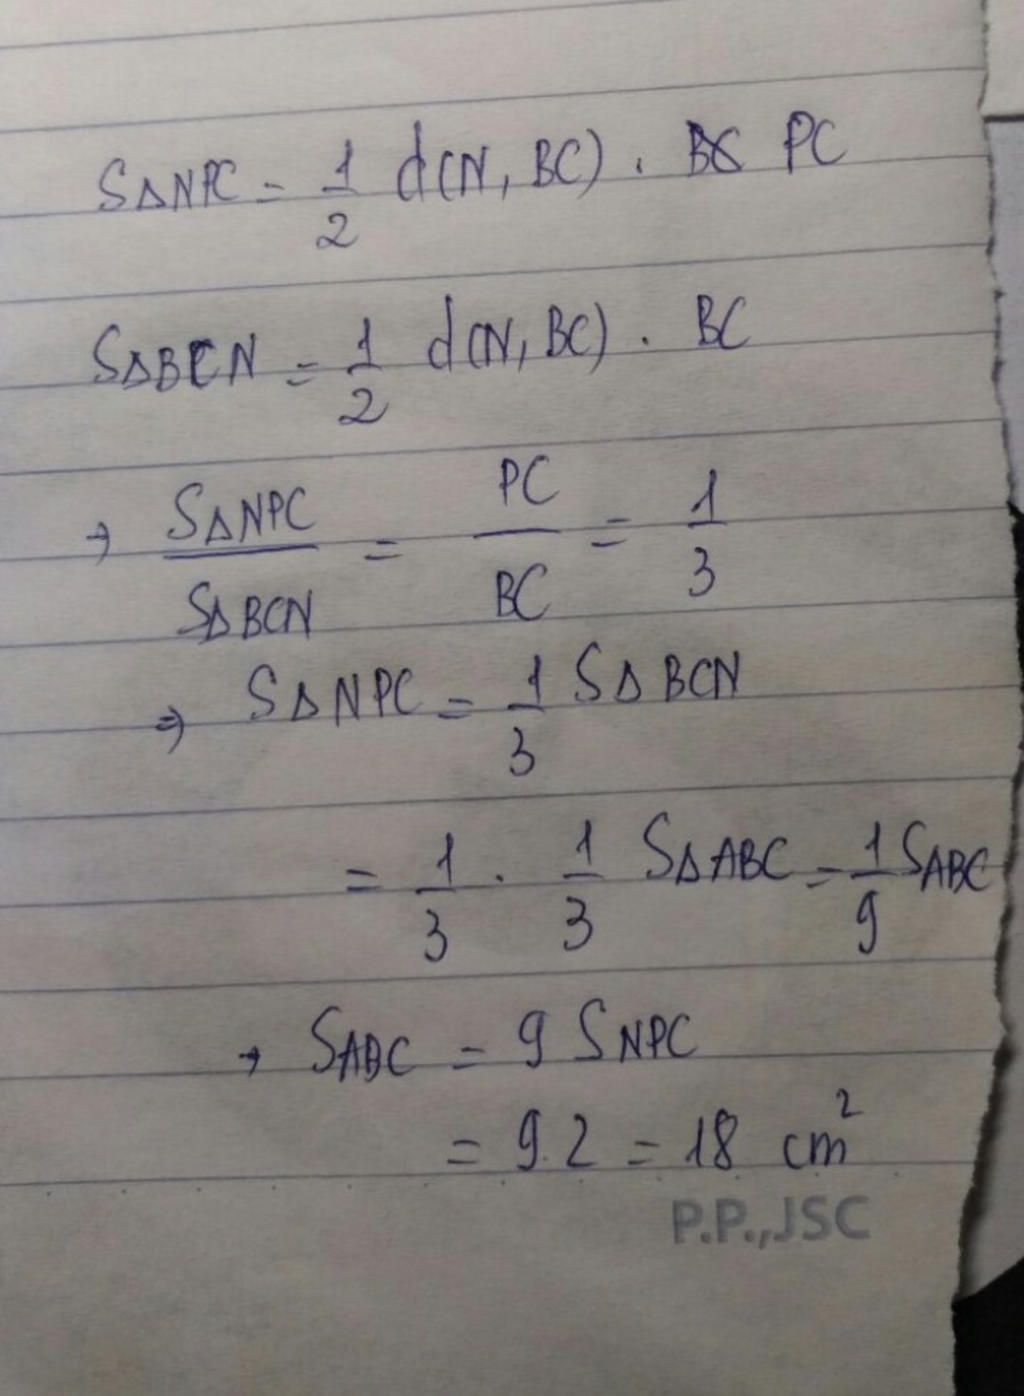 SΔNPC = 1/2 d(N, BC) . PC
SΔBCN = 1/2 d(N, BC) . BC
→ SΔNPC/SΔBCN = PC/BC = 1/3
⇒ SΔNPC = 1/3 SΔBCN
= 1/3 . 1/3 SΔABC = 1/9 SABC
→ SABC = 9 SNPC
= 9.2 = 18 cm²
P.P.,JSC